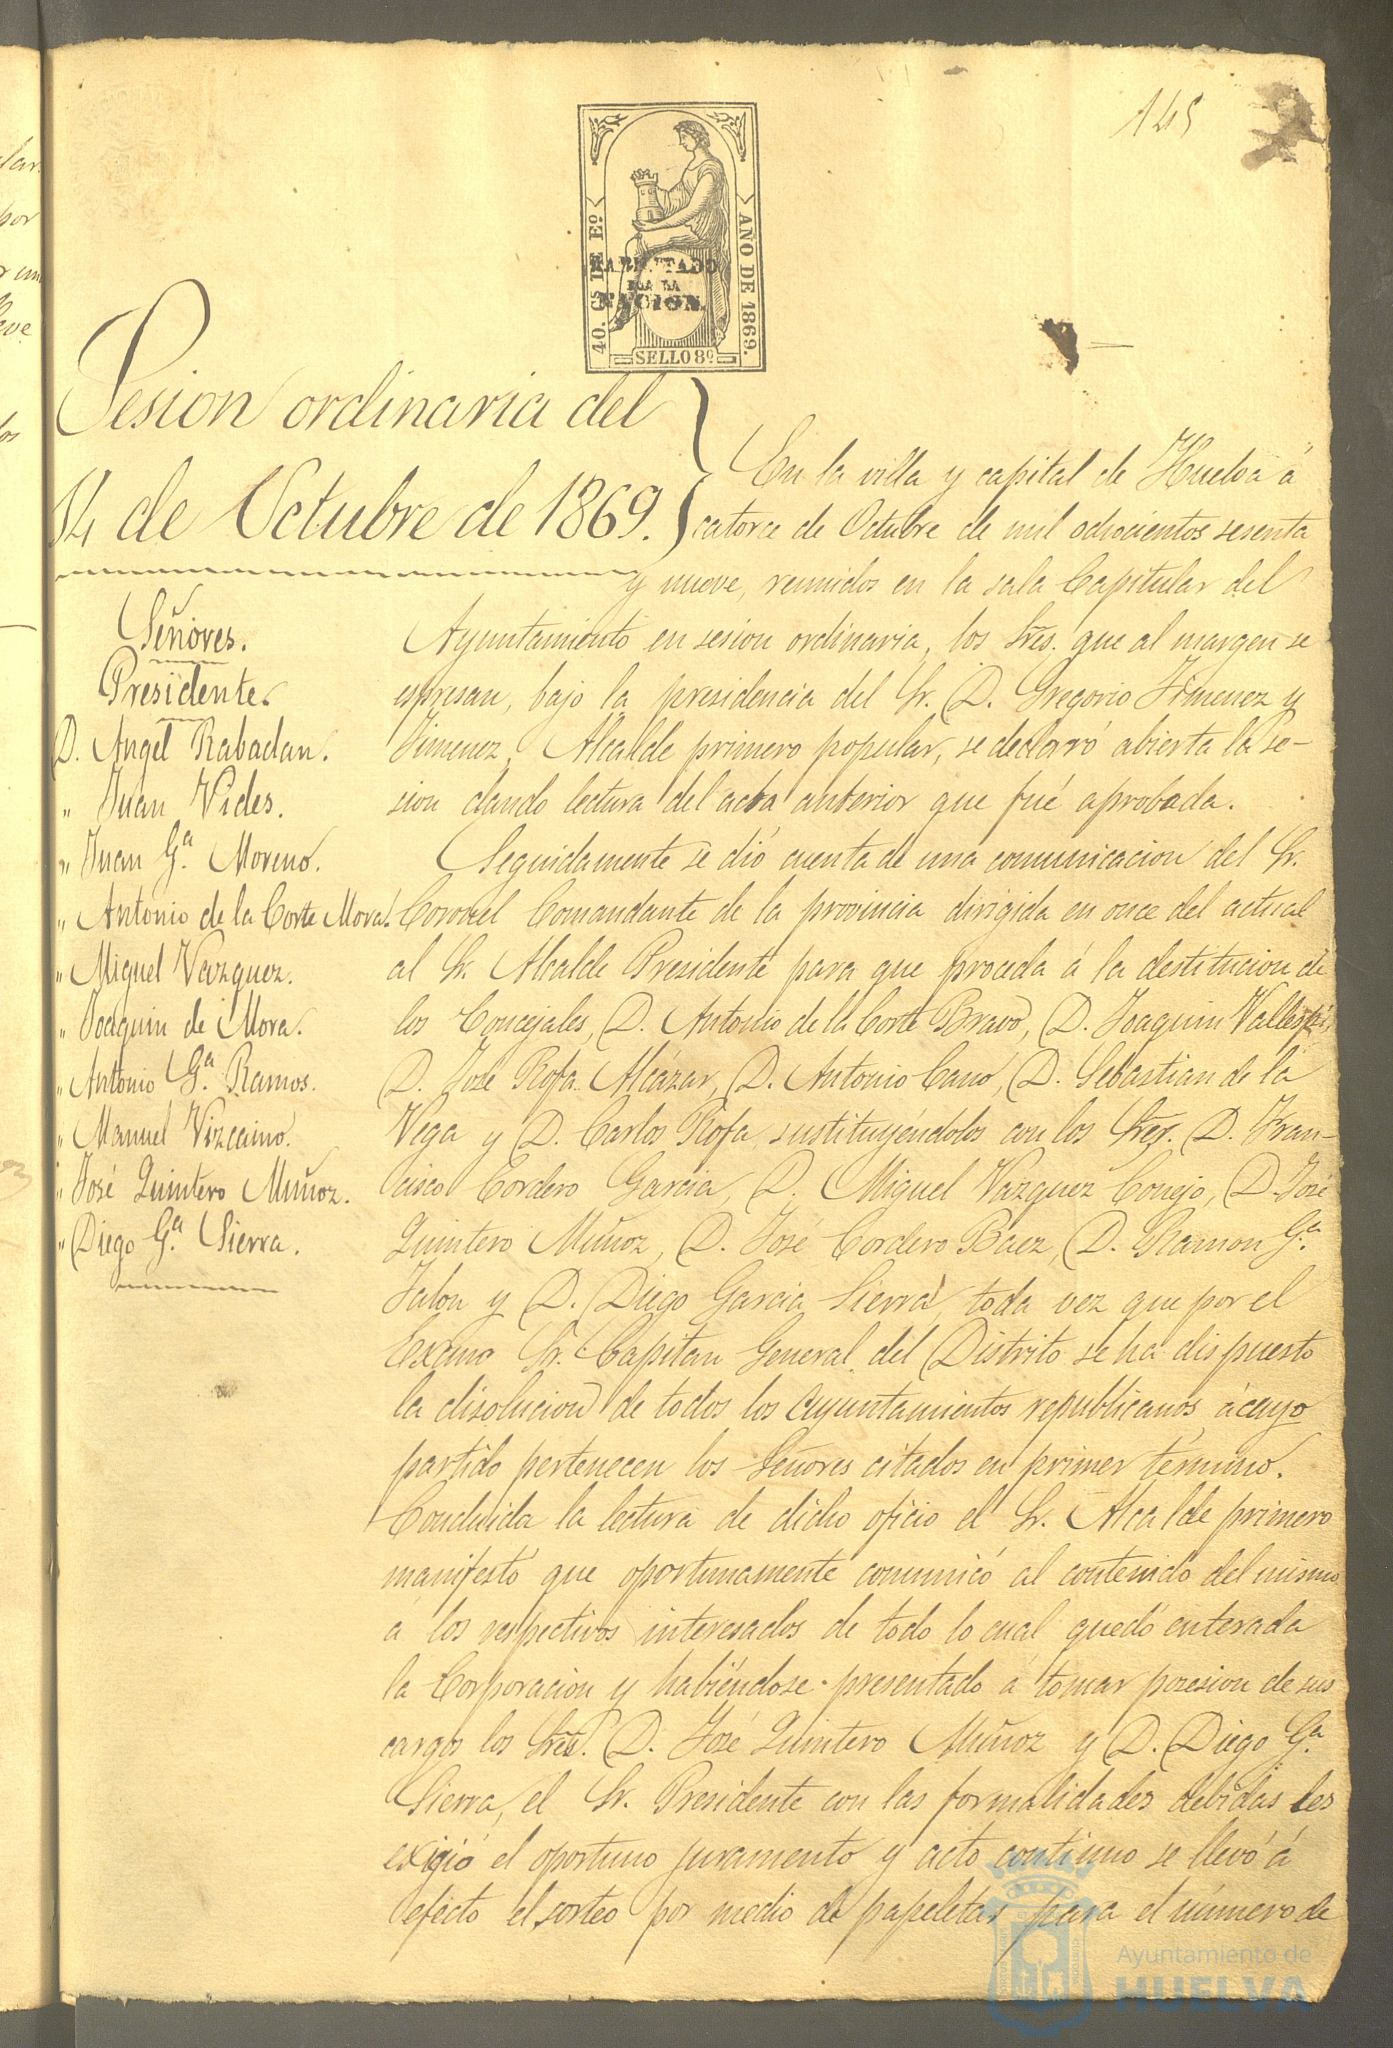 145
40. Cs DE Eº
AÑO DE 1869.
HABILITADO
POR LA
NACION.
SELLO 8º
Sesion ordinaria del
14 de Octubre de 1869.
Señores.
Presidente.
D. Angel Rabadan.
" Juan Vides.
" Juan Gª Moreno.
" Antonio de la Corte Mora.
" Miguel Vazquez.
" Joaquin de Mora.
" Antonio Gª Ramos.
" Manuel Vizcaino.
" José Quintero Muñoz.
" Diego Gª Sierra.
En la villa y capital de Huelva á
catorce de Octubre de mil ochocientos sesenta
y nueve, reunidos en la sala Capitular del
Ayuntamiento en sesion ordinaria, los Sres. que al margen se
espresan, bajo la presidencia del Sr. D. Gregorio Jimenez y
Jimenez, Alcalde primero popular, se declaró abierta la se-
sion dando lectura del acta anterior que fué aprobada.
Seguidamente se dió cuenta de una comunicacion del Sr.
Coronel Comandante de la provincia dirigida en once del actual
al Sr. Alcalde Presidente para que proceda á la destitucion de
los Concejales, D. Antonio de la Corte Bravo, D. Joaquin
D. José Rofa Alcázar, D. Antonio Cano, D. Sebastian de la
Vega y D. Carlos Rofa, sustituyéndolos con los Sres. D. Fran-
cisco Cordero Garcia, D. Miguel Vazquez Conejo, D. José
Quintero Muñoz, D. José Cordero Baez, D. Ramon Gª
Jalon y D. Diego Garcia Sierra, toda vez que por el
Exmo Sr. Capitan General del Distrito se ha dispuesto
la disolucion de todos los Ayuntamientos republicanos, á cuyo
partido pertenecen los Señores citados en primer término.
Concluida la lectura de dicho oficio el Sr. Alcalde primero
manifestó que oportunamente comunicó al contenido del mismo
á los respectivos interesados de todo lo cual quedó enterada
la Corporacion y habiéndose presentado á tomar posesion de sus
cargos los Sres. D. José Quintero Muñoz y D. Diego Gª
Sierra, el Sr. Presidente con las formalidades debidas les
exigió el oportuno juramento y acto continuo se llevó á
efecto el sorteo por medio de papeletas para el número de
Ayuntamiento de
HUELVA